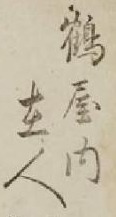 鶴屋内
主人